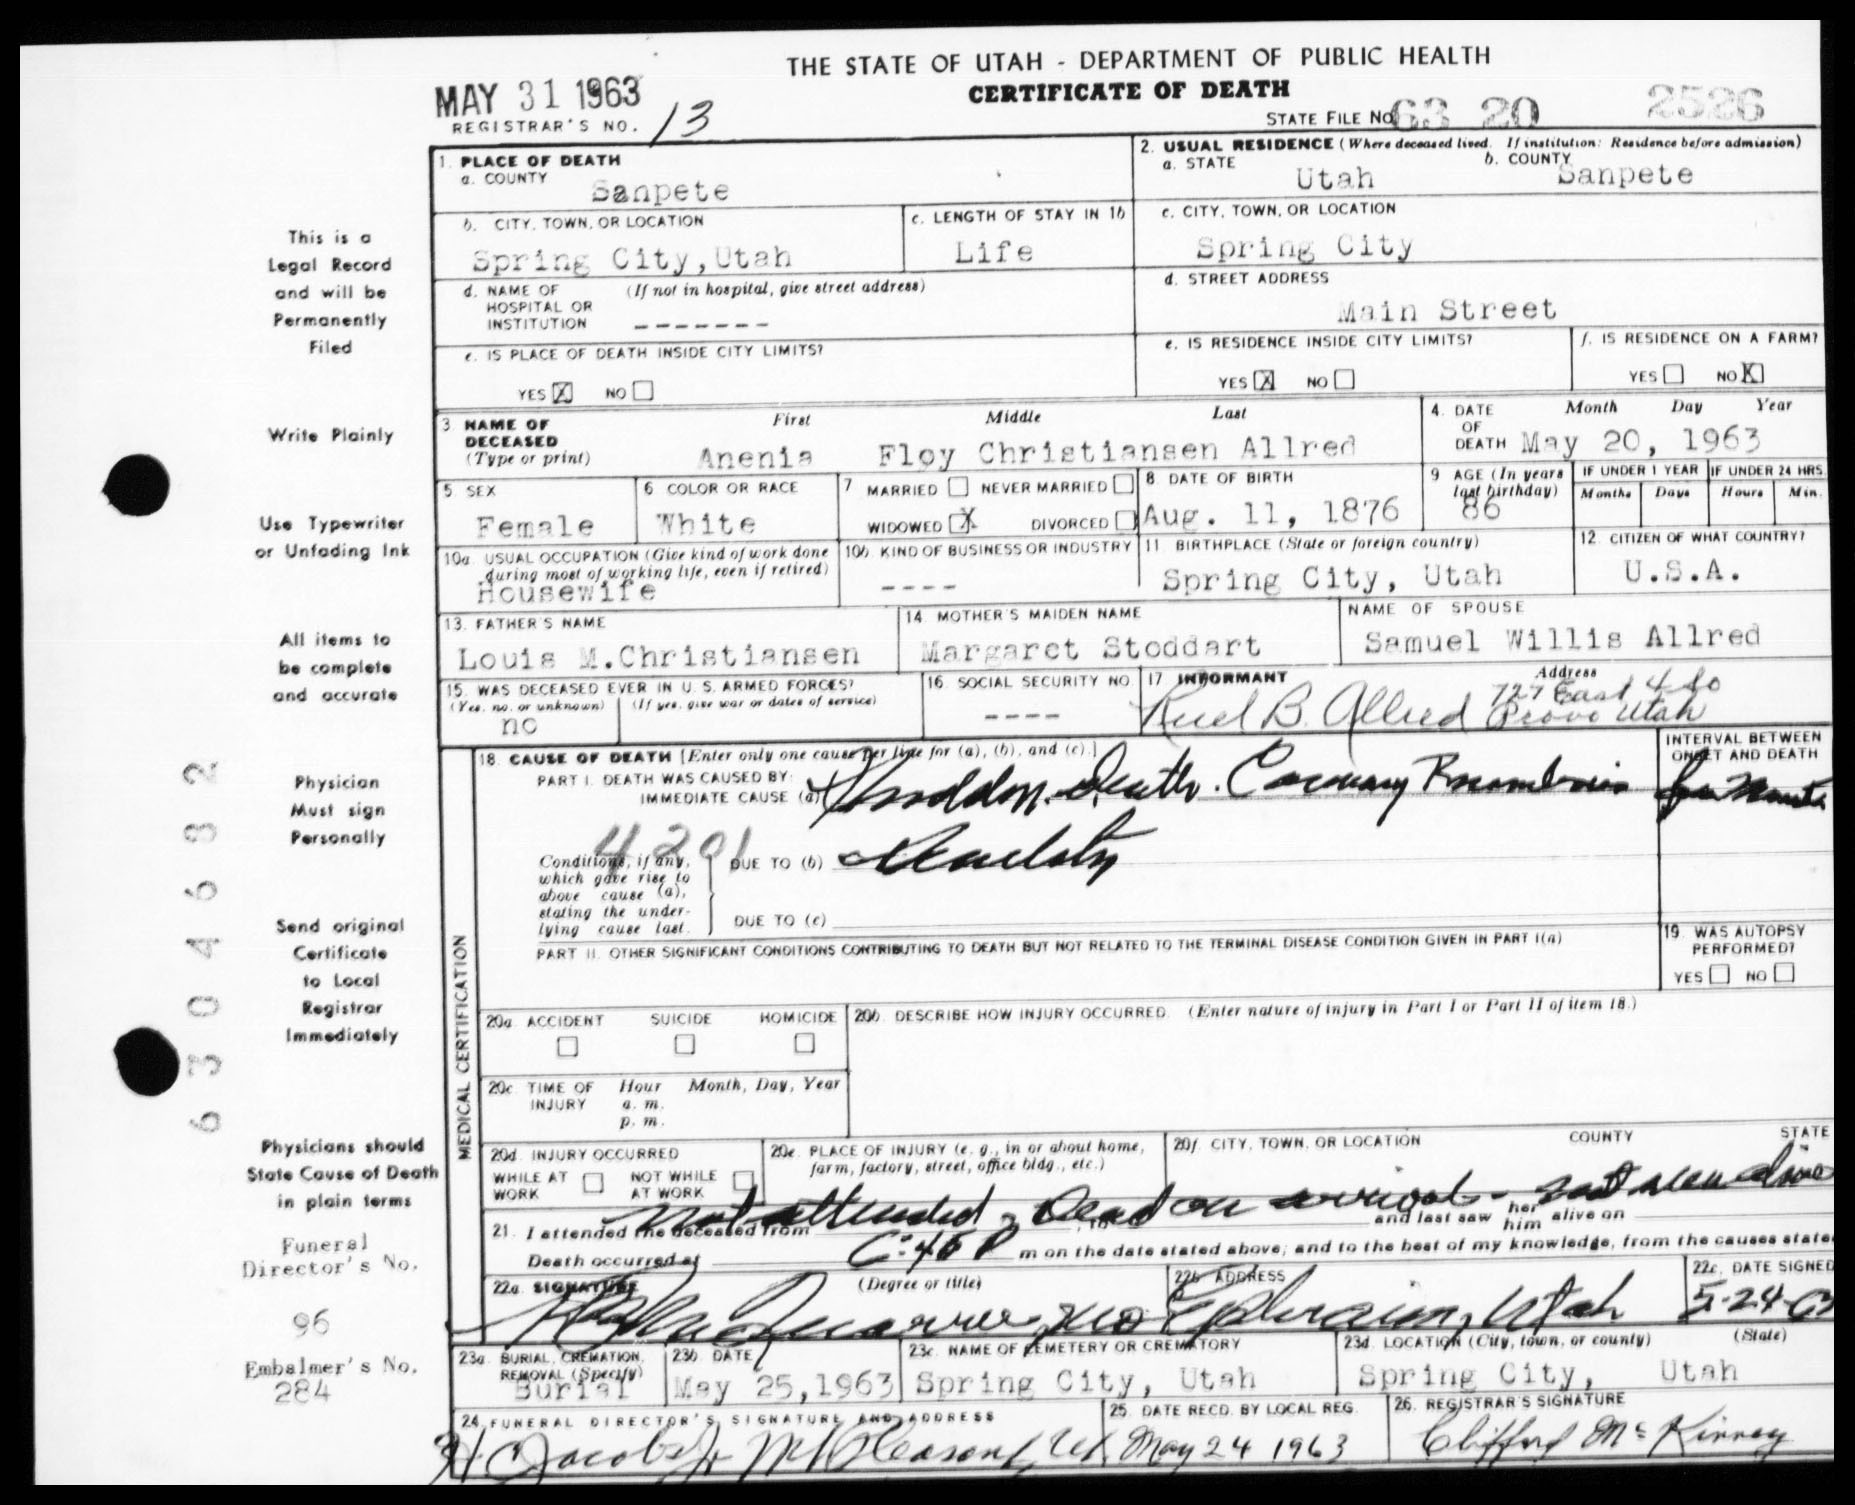 THE STATE OF UTAH - DEPARTMENT OF PUBLIC HEALTH
CERTIFICATE OF DEATH
MAY 31 1963
REGISTRAR'S NO. 13
STATE FILE NO. 63 20 2526
1. PLACE OF DEATH
a. COUNTY
Sanpete
2. USUAL RESIDENCE (Where deceased lived. If institution: Residence before admission)
a. STATE
Utah
b. COUNTY
Sanpete
b. CITY, TOWN, OR LOCATION
Spring City, Utah
c. LENGTH OF STAY IN 1b
Life
c. CITY, TOWN, OR LOCATION
Spring City
d. NAME OF HOSPITAL OR INSTITUTION
(If not in hospital, give street address)
-------
d. STREET ADDRESS
Main Street
e. IS PLACE OF DEATH INSIDE CITY LIMITS?
YES X NO
e. IS RESIDENCE INSIDE CITY LIMITS?
YES X NO
f. IS RESIDENCE ON A FARM?
YES NO X
3 NAME OF DECEASED (Type or print)
First Middle Last
Anenia Floy Christiansen Allred
4. DATE OF DEATH
Month Day Year
May 20, 1963
5 SEX
Female
6 COLOR OR RACE
White
7 MARRIED NEVER MARRIED
WIDOWED X DIVORCED
8 DATE OF BIRTH
Aug. 11, 1876
9 AGE (In years last birthday)
86
IF UNDER 1 YEAR
Months Days
IF UNDER 24 HRS.
Hours Min.
10a. USUAL OCCUPATION (Give kind of work done during most of working life, even if retired)
Housewife
10b. KIND OF BUSINESS OR INDUSTRY
----
11. BIRTHPLACE (State or foreign country)
Spring City, Utah
12. CITIZEN OF WHAT COUNTRY?
U.S.A.
13. FATHER'S NAME
Louis M.Christiansen
14. MOTHER'S MAIDEN NAME
Margaret Stoddart
NAME OF SPOUSE
Samuel Willis Allred
15. WAS DECEASED EVER IN U. S. ARMED FORCES?
(Yes, no, or unknown) (If yes, give war or dates of service)
no
16. SOCIAL SECURITY NO.
----
17 INFORMANT Address
Ruel B. Allred 727 East 4 So
Provo Utah
MEDICAL CERTIFICATION
18. CAUSE OF DEATH [Enter only one cause per line for (a), (b), and (c).]
PART I. DEATH WAS CAUSED BY:
IMMEDIATE CAUSE (a) Sudden Death. Coronary Thrombosis
INTERVAL BETWEEN ONSET AND DEATH
4201
Conditions, if any, which gave rise to above cause (a), stating the underlying cause last.
DUE TO (b)
DUE TO (c)
PART II. OTHER SIGNIFICANT CONDITIONS CONTRIBUTING TO DEATH BUT NOT RELATED TO THE TERMINAL DISEASE CONDITION GIVEN IN PART I(a)
19. WAS AUTOPSY PERFORMED?
YES NO
20a. ACCIDENT SUICIDE HOMICIDE
20b. DESCRIBE HOW INJURY OCCURRED. (Enter nature of injury in Part I or Part II of item 18.)
20c. TIME OF INJURY
Hour Month, Day, Year
a. m.
p. m.
20d. INJURY OCCURRED
WHILE AT WORK NOT WHILE AT WORK
20e. PLACE OF INJURY (e. g., in or about home, farm, factory, street, office bldg., etc.)
20f. CITY, TOWN, OR LOCATION COUNTY STATE
Not attended - Dead on arrival - not seen alive
21. I attended the deceased from to and last saw her him alive on
Death occurred at 6:45 P m on the date stated above; and to the best of my knowledge, from the causes state
22a. SIGNATURE (Degree or title)
22b. ADDRESS
Ephraim, Utah
22c. DATE SIGNED
5-24-63
23a. BURIAL, CREMATION, REMOVAL (Specify)
Burial
23b. DATE
May 25,1963
23c. NAME OF CEMETERY OR CREMATORY
Spring City, Utah
23d. LOCATION (City, town, or county) (State)
Spring City, Utah
24. FUNERAL DIRECTOR'S SIGNATURE AND ADDRESS
25. DATE RECD. BY LOCAL REG.
May 24 1963
26. REGISTRAR'S SIGNATURE
Clifford McKinney
This is a
Legal Record
and will be
Permanently
Filed
Write Plainly
Use Typewriter
or Unfading Ink
All items to
be complete
and accurate
Physician
Must sign
Personally
Send original
Certificate
to Local
Registrar
Immediately
Physicians should
State Cause of Death
in plain terms
Funeral
Director's No.
96
Embalmer's No.
284
63046832